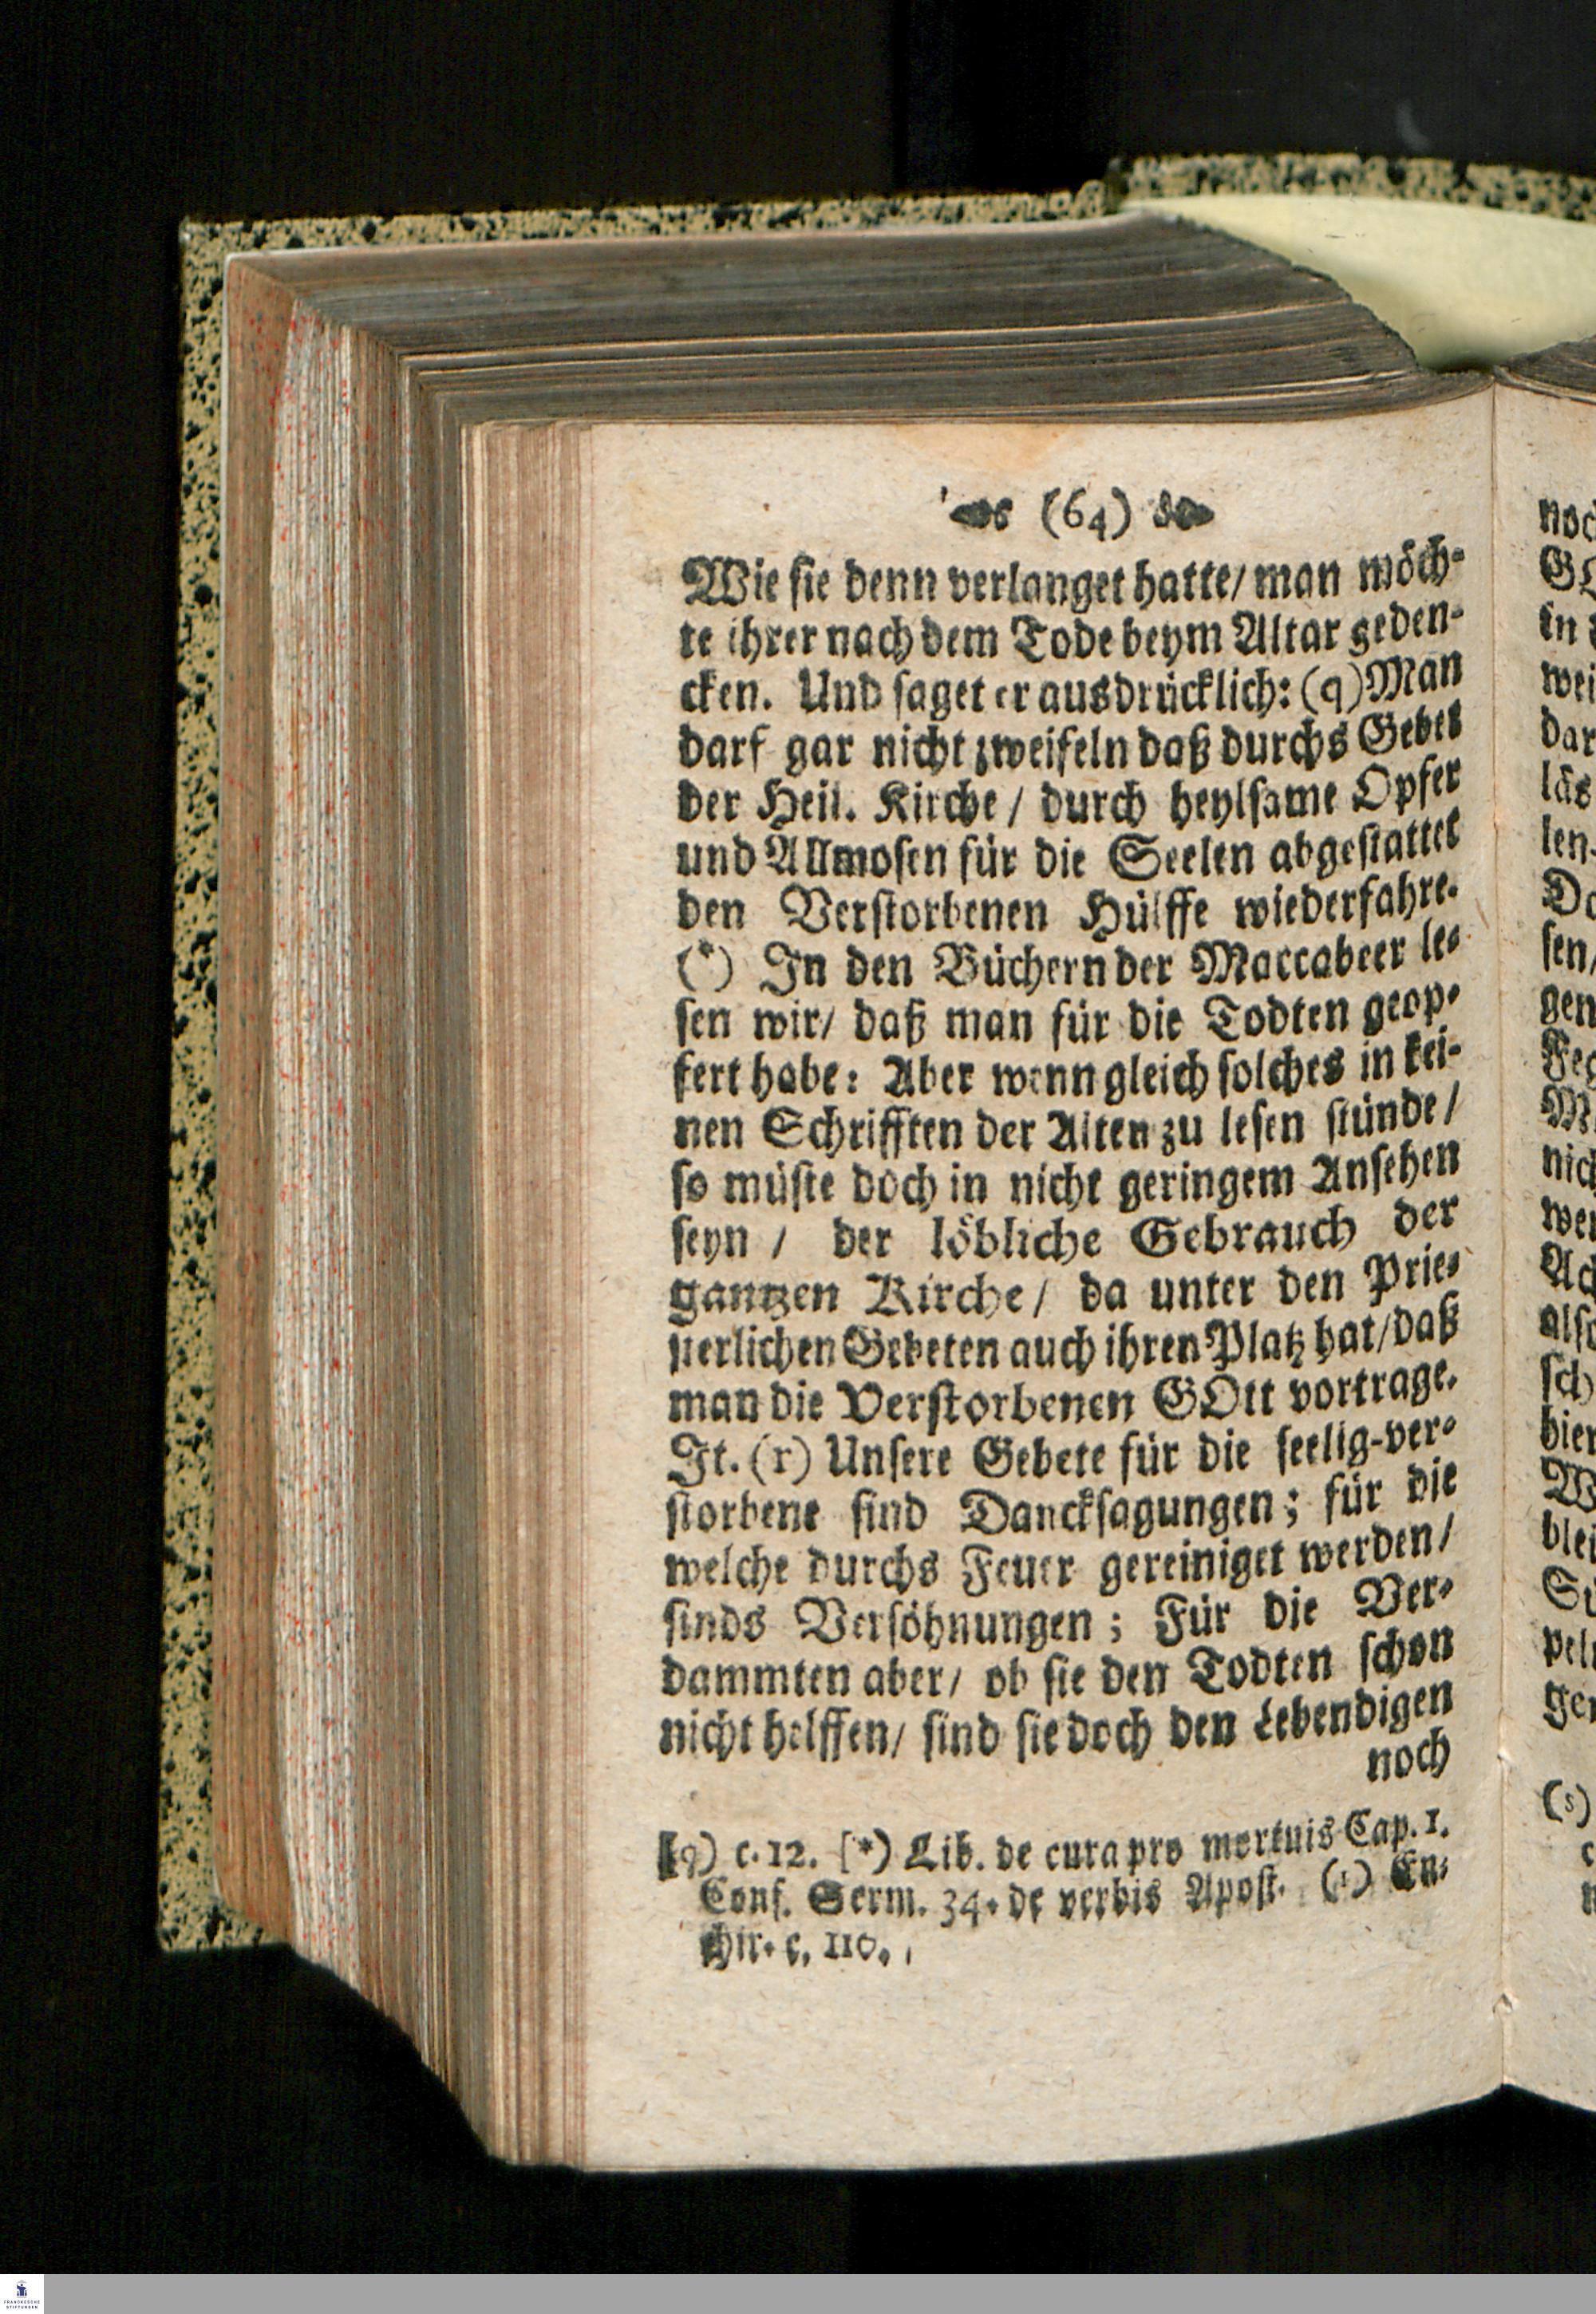 (64)
Wie sie denn verlanget hatte/ man möch-
te ihrer nach dem Tode beym Altar geden-
cken. Und saget er ausdrücklich: (q) Man
darf gar nicht zweifeln daß durchs Gebet
der Heil. Kirche / durch heylsame Opfer
und Allmosen für die Seelen abgestattet
den Verstorbenen Hülffe wiederfahre.
(*) In den Büchern der Maccabeer le-
sen wir/ daß man für die Todten geop-
fert habe: Aber wenn gleich solches in kei-
nen Schrifften der Alten zu lesen stünde /
so müste doch in nicht geringem Ansehen
seyn / der löbliche Gebrauch der
gantzen Kirche / da unter den Prie-
sterlichen Gebeten auch ihren Platz hat/ daß
man die Verstorbenen GOtt vortrage.
It. (r) Unsere Gebete für die seelig-ver-
storbene sind Dancksagungen; für die
welche durchs Feuer gereiniget werden/
sinds Versöhnungen; Für die Ver-
dammten aber/ ob sie den Todten schon
nicht helffen/ sind sie doch den Lebendigen
noch
(q) c. 12. (*) Lib. de cura pro mortuis Cap. 1.
Conf. Serm. 34. de verbis Apost. (r) En-
chir. c. 110.
noc
in
wei
dar
läs
len-
sen/
gen
nich
wer
als
sch
blei
pel
ger
(s)
FRANCKESCHE
STIFTUNGEN